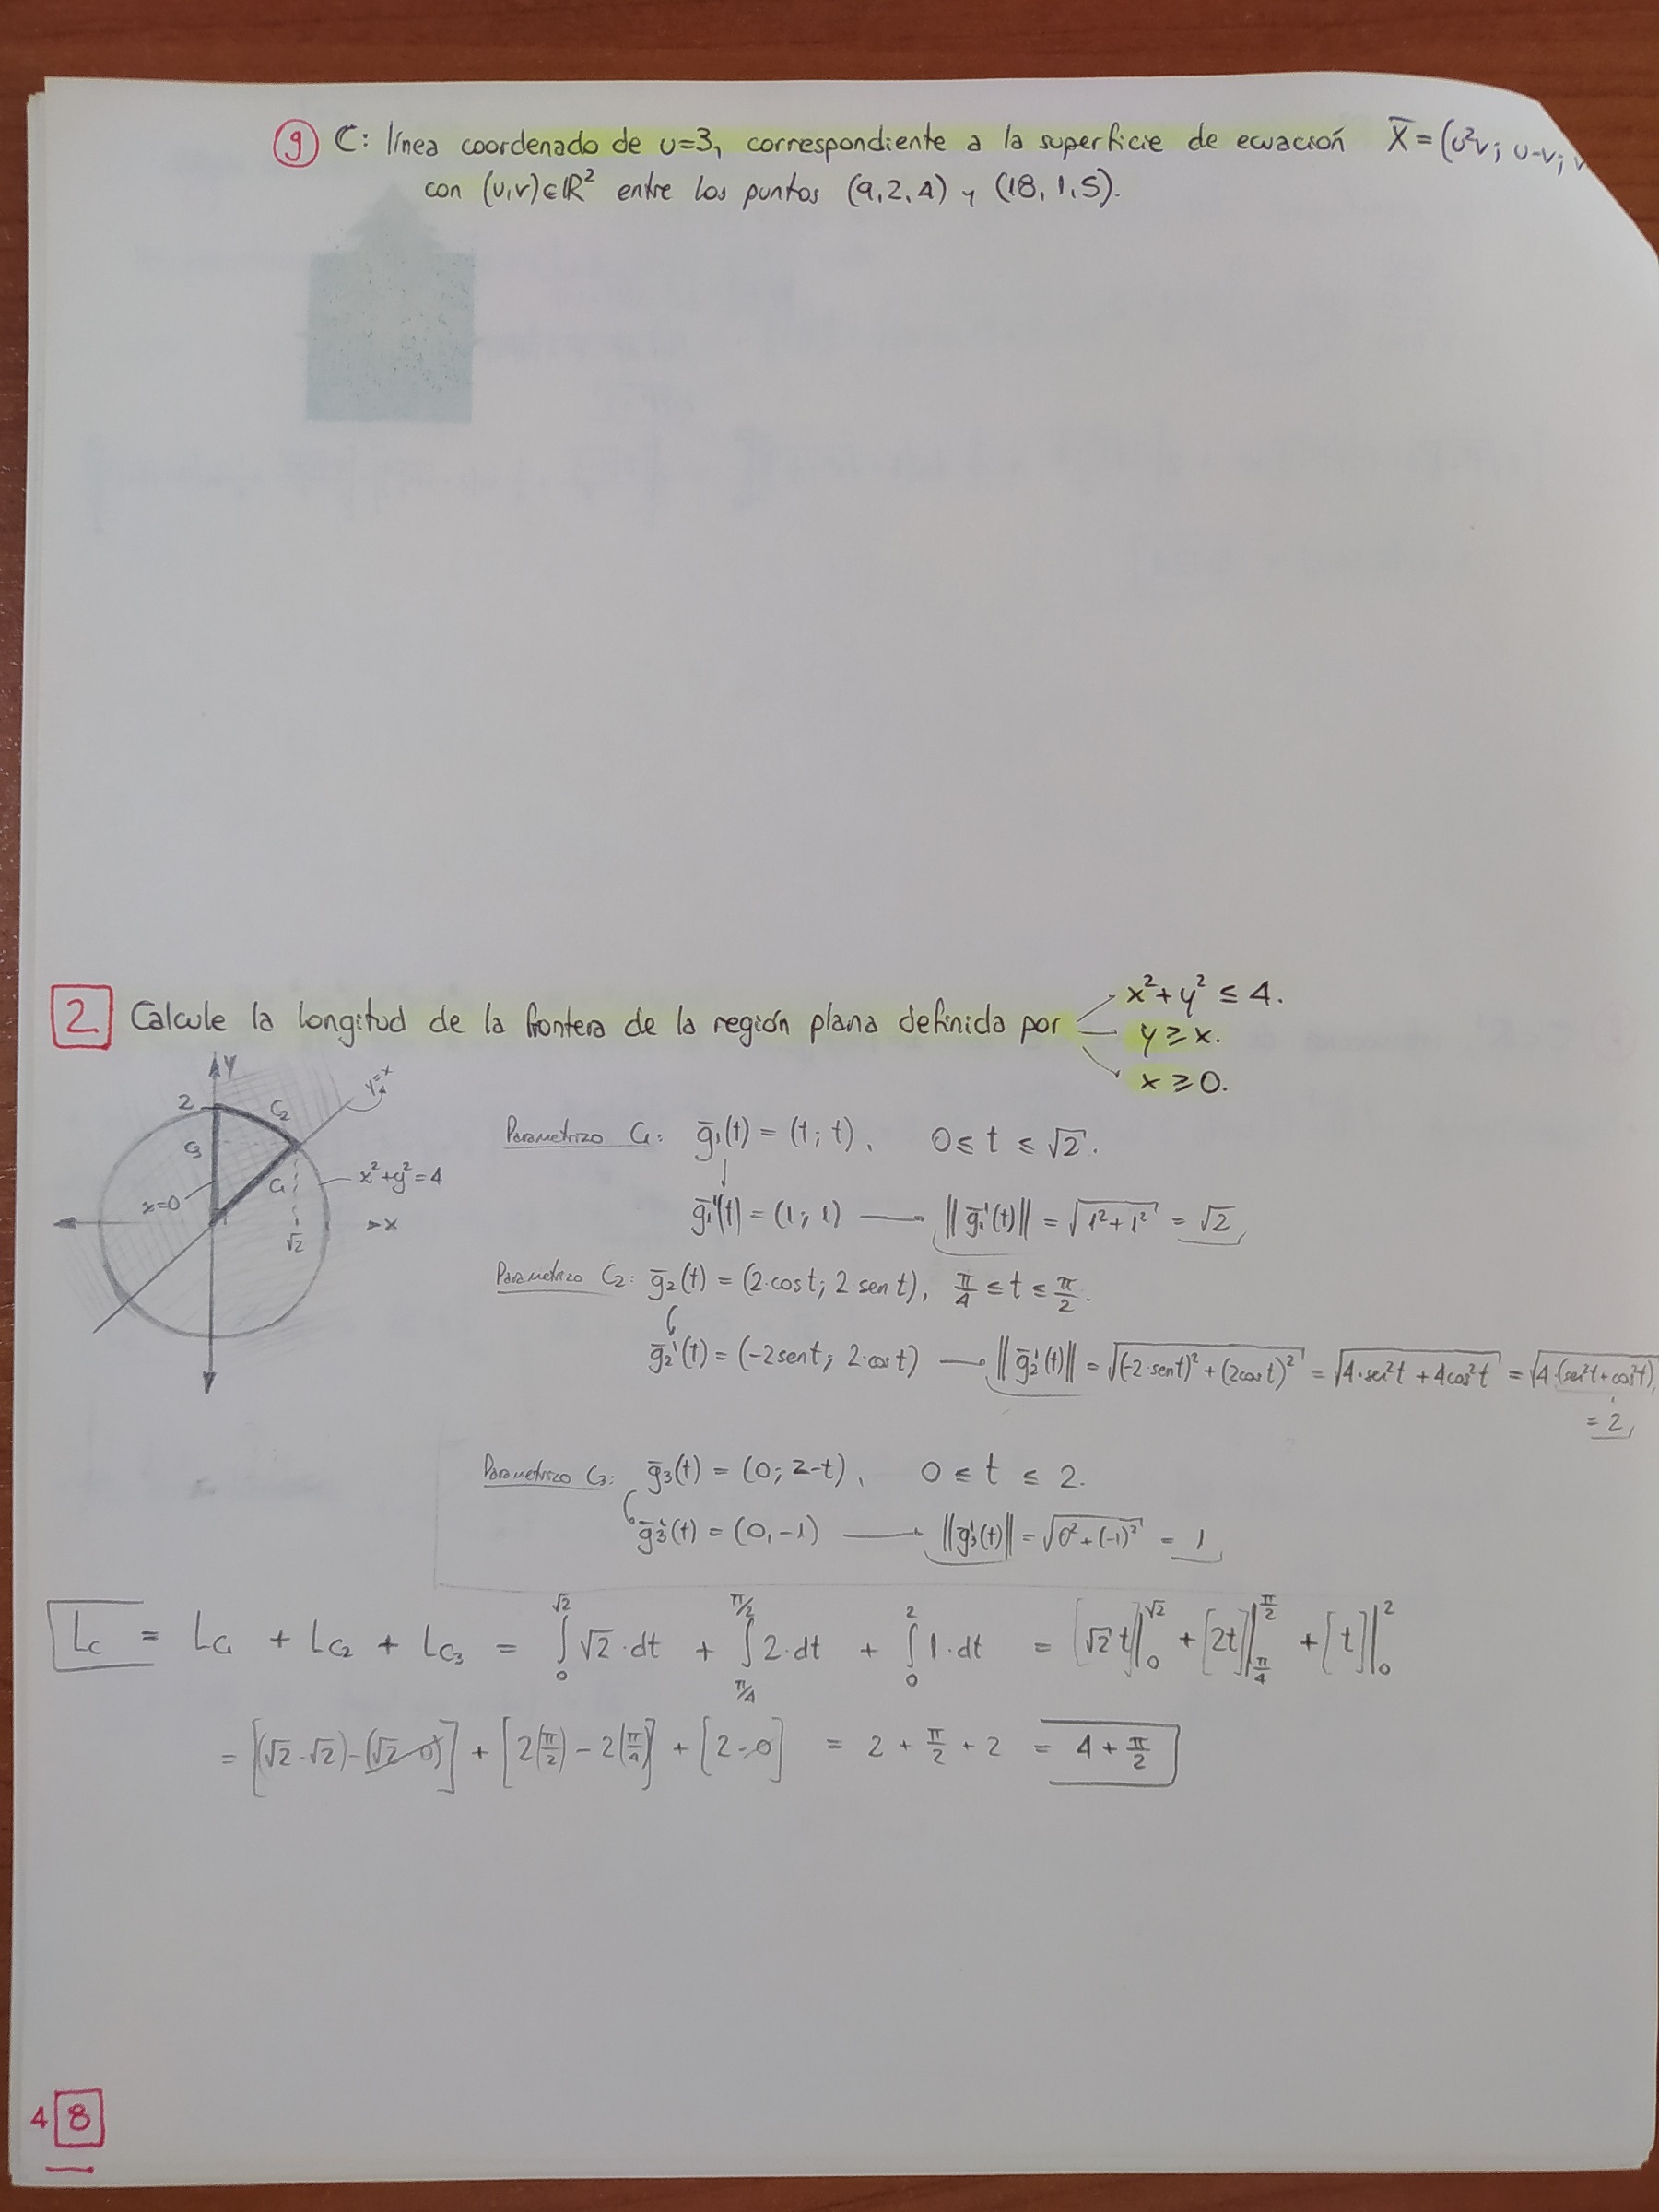 g) C: línea coordenada de u=3, correspondiente a la superficie de ecuación X̄ = (u²v; u-v;
con (u,v)∈ℝ² entre los puntos (9,2,4) y (18,1,5).
2 Calcule la longitud de la frontera de la región plana definida por
x²+y² ≤ 4.
y ≥ x.
x ≥ 0.
y
2
C₂
y=x
C₃
C₁
x²+y²=4
x=0
√2
x
Parametrizo C₁: ḡ₁(t) = (t; t), 0 ≤ t ≤ √2.
ḡ₁'(t) = (1; 1) → ||ḡ₁'(t)|| = √(1²+1²) = √2
Parametrizo C₂: ḡ₂(t) = (2·cost; 2·sent), π/4 ≤ t ≤ π/2.
ḡ₂'(t) = (-2sent; 2·cost) → ||ḡ₂'(t)|| = √((-2·sent)²+(2cost)²) = √(4·sen²t + 4cos²t) = √(4·(sen²t+cos²t))
= 2
Parametrizo C₃: ḡ₃(t) = (0; 2-t), 0 ≤ t ≤ 2.
ḡ₃'(t) = (0,-1) → ||ḡ₃'(t)|| = √(0²+(-1)²) = 1
L_C = L_C₁ + L_C₂ + L_C₃ = ∫₀^√2 √2·dt + ∫_π/4^π/2 2·dt + ∫₀² 1·dt = [√2 t]|₀^√2 + [2t]|_π/4^π/2 + [t]|₀²
= [(√2·√2)-(√2·0)] + [2(π/2) - 2(π/4)] + [2-0] = 2 + π/2 + 2 = 4 + π/2
4 8